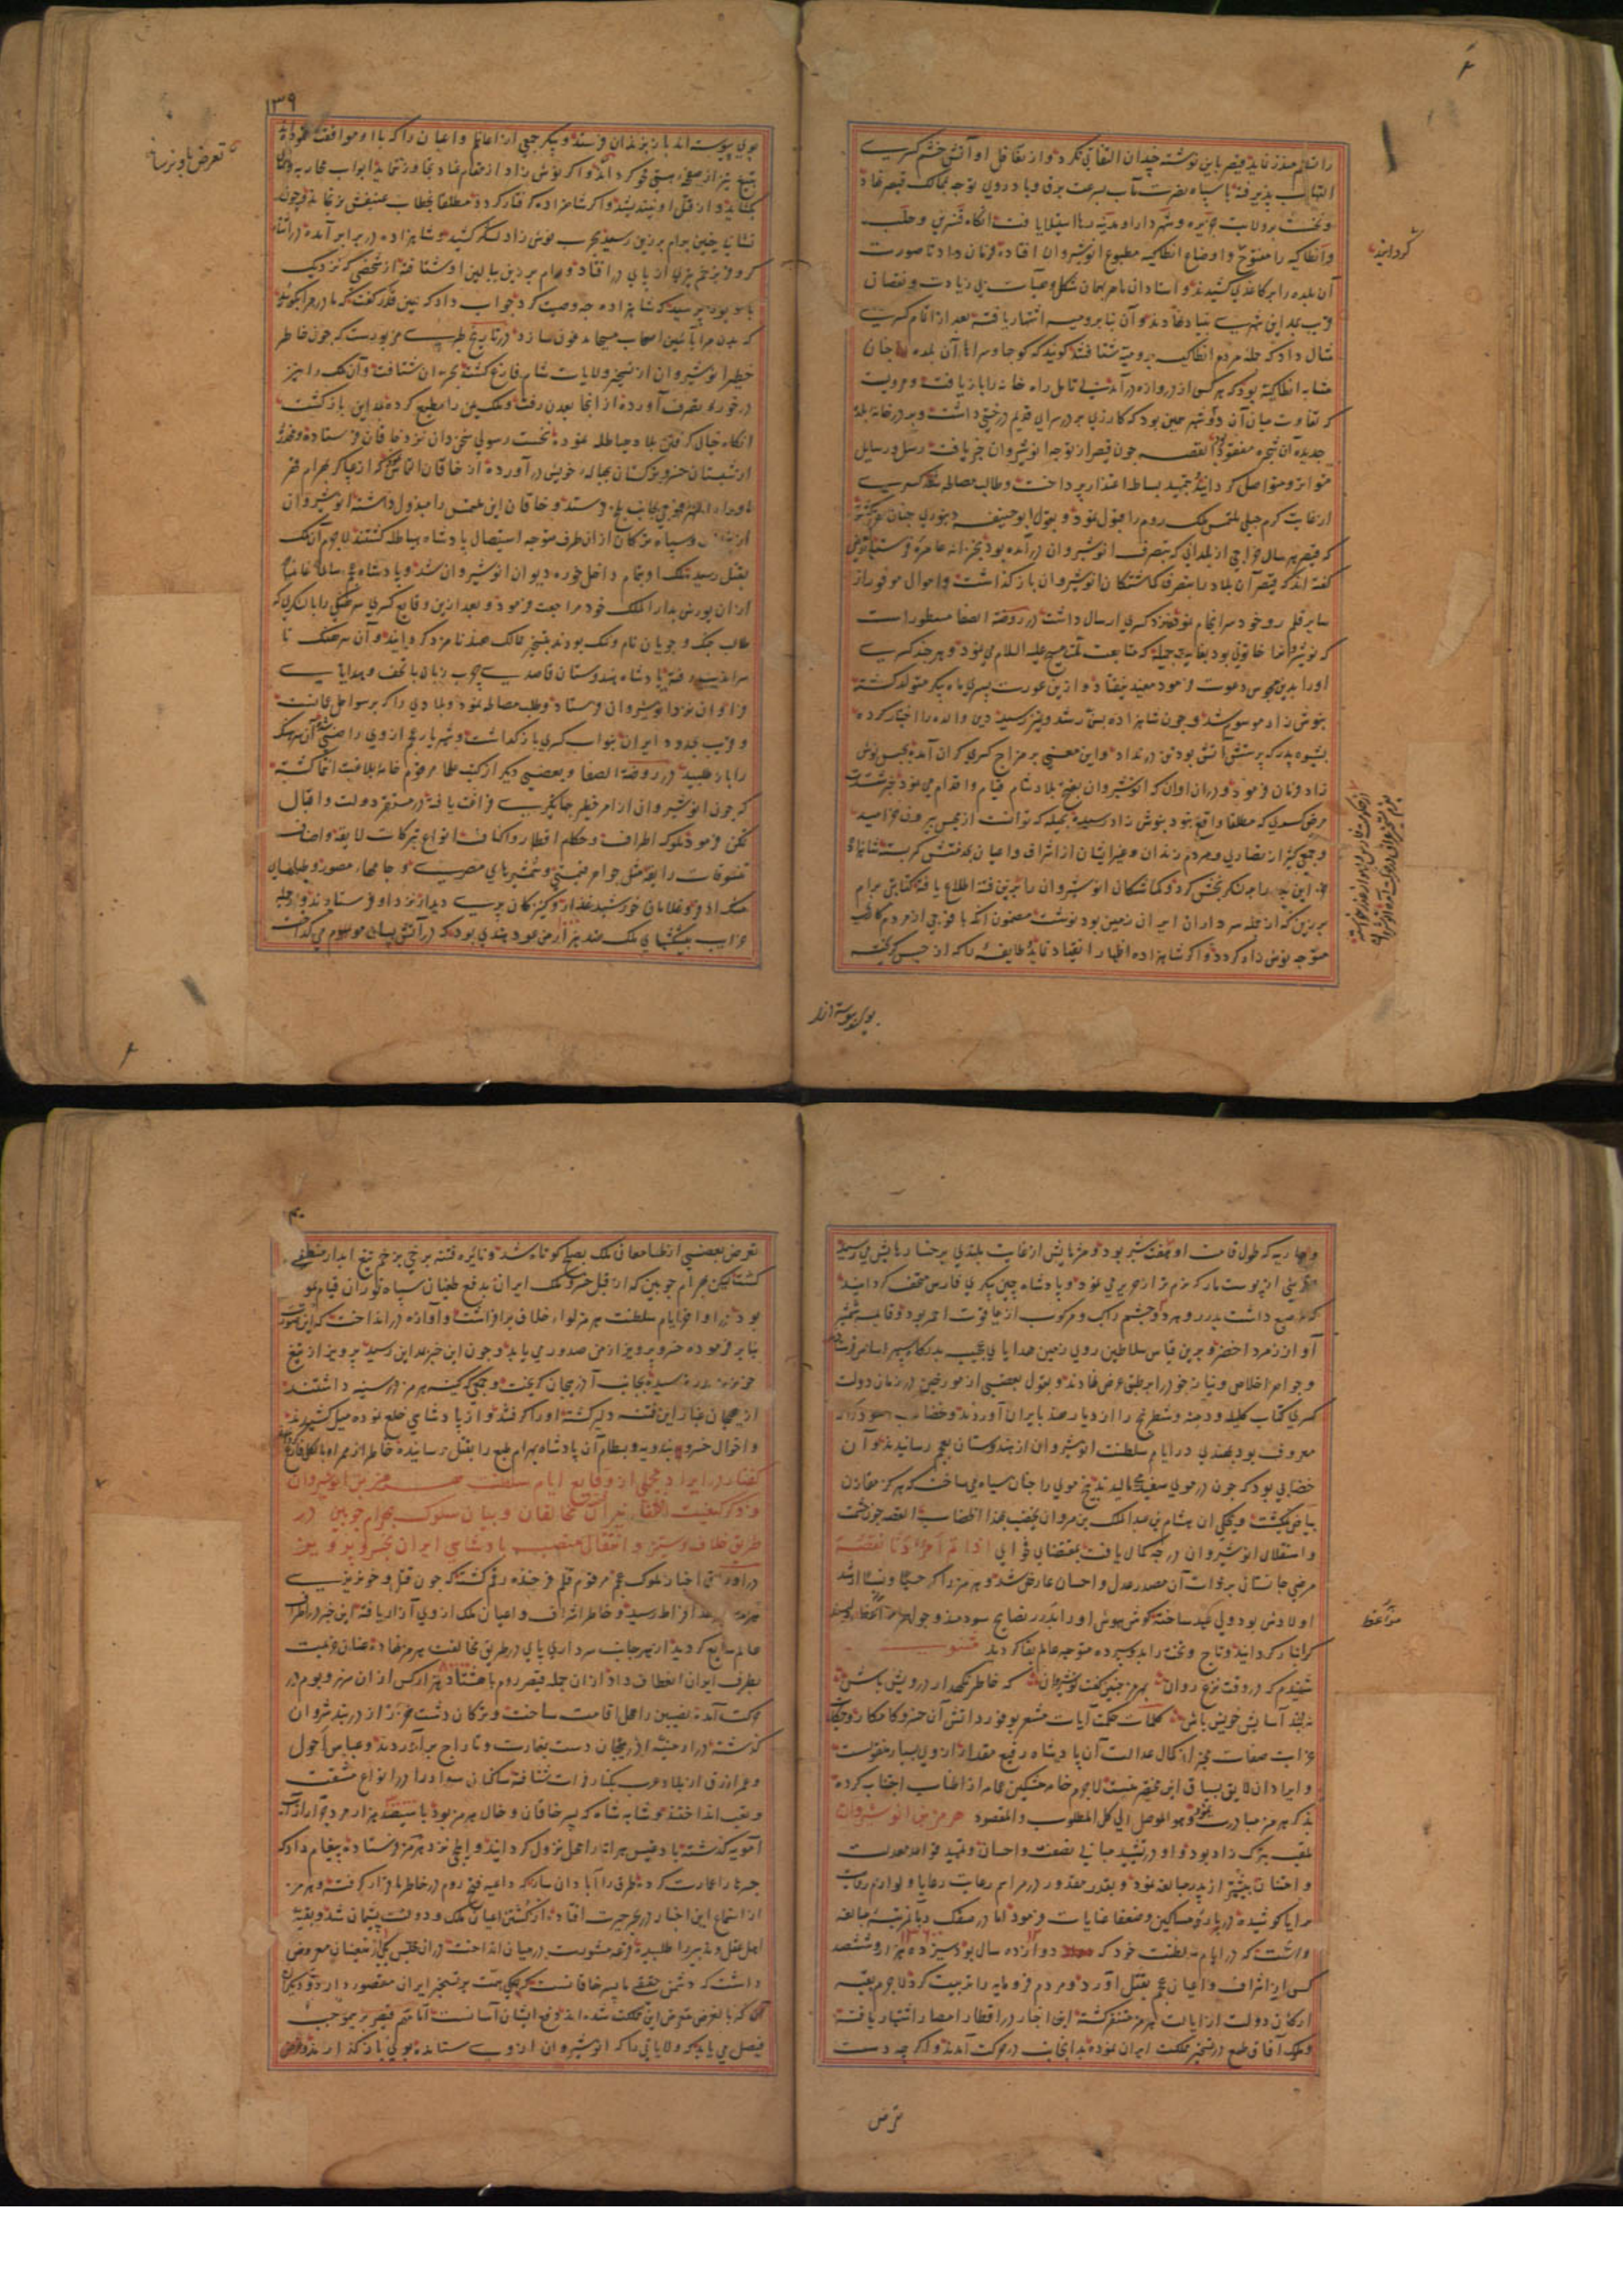 را تسلیم منذر نماید قیصر باین نوشته چندان التفاتی نکرد و از تغافل او آتش خشم کسری
التهاب پذیرفته با سپاه نصرت مآب بسرعت برق و باد روی توجه بممالک قیصر نهاد
و نخست بر ولایت جزیره و شهر دارا و مدینه رها استیلا یافت آنگاه قنسرین و حلب
و انطاکیه را مفتوح و اوضاع انطاکیه مطبوع انوشیروان افتاده فرمان داد تا صورت
آن بلده را بر کاغذی کشیدند و استادان ماهر بهمان شکل و هیأت بی زیادت و نقصان
قریب بمداین شهری بنیاد نهادند و آن بنا برومیه اشتهار یافته بعد از اتمام کسری
مثال داد که جمله مردم انطاکیه برومیه شتافتند گویند که کوچها و سراهاء آن بلده
مشابه انطاکیه بود که هر کس از دروازه درآمد بی تامل راه خانه را باز یافت و مرویست
که تفاوت میان آن دو شهر همین بود که گازری بر در سرای قدیم درختی داشت و بر در خانه بلده
جدیده آن شجره مفقود بود القصه چون قیصر از توجه انوشیروان خبر یافت رسل و رسایل
متواتر و متواصل گردانیده بتمهید بساط اعتذار پرداخت و طالب مصالحه شد کسری
از غایت کرم جبلی ملتمس ملک روم را قبول نمود و بقول ابوحنیفه دینوری چنان مقرر گشت
که قیصر هر سال خراجی از بلدانی که بتصرف انوشیروان درآمده بود بخزانه عامره فرستد
گفته اند که قیصر آن بلاد را بتصرف گماشتگان انوشیروان باز گذاشت و اموال موفور از
سایر قلمرو خود سرانجام نموده نزد کسری ارسال داشت در روضة الصفا مسطور است
که نوشیروان را خاتونی بود بغایت جمیله که متابعت ملت مسیح علیه السلام می نمود و هرچند کسری
او را بدین مجوس دعوت فرمود مفید نیفتاد و ازین عورت پسری ماه پیکر متولد گشته
بنوش زاد موسوم شد و چون شاهزاده بسن رشد و تمیز رسید دین والده را اختیار کرده
بشیوه پدر که پرستش آتش بود تن درنداد و این معنی بر مزاج کسری گران آمده بحبس نوش
زاد فرمان فرمود و در آن اوان که انوشیروان بفتح بلاد شام قیام و اقدام می نمود خبر شدت
مرض کسری که مطلقا واقع نبود بنوش زاد رسیده بحیله که توانست از حبس بیرون خرامید
و جمعی کثیر از نصاری و مردم زندان و غیر ایشان از اشراف و اعیان بخدمتش کمر بسته شاهزاده
بر لشکر بخش کرد و گماشتگان انوشیروان را برین فتنه اطلاع یافته کتابتی برام
برزین که از جمله سرداران ایران زمین بود نوشت مضمون آنکه با فوجی از مردم کاری
متوجه نوش زاد گردد و اگر شاهزاده اظهار انقیاد نماید طایفه را که از حبس گریخته
گردانید
بوی پیوسته از
۱۳۹
بوی پیوسته اند باز بزندان فرستد و دیگر جمعی از اعاظم و اعیان را که با او موافقت نموده اند
بتیغ تیز از صفحه هستی محو گرداند و اگر نوش زاد از مقام عناد تجاوز ننماید ابواب محاربه
بگشاید و از قتل او نیندیشد و اگر شاهزاده گرفتار گردد مطلقا بخطاب عنیفش نرنجاند و چون
نشان باین مضمون برام برزین رسید بحرب نوش زاد لشکر کشید و شاهزاده در برابر آمده در اثناء
کر و فر بزخم تیری از پای در افتاد و رام برزین ببالین او شتافته از شخصی که نزدیک
باو بود پرسید که شاهزاده چه وصیت کرد جواب داد که همین قدر گفت که مادرم را بگوئید
که بدن مرا بآئین اصحاب مسیحا مدفون سازد در تاریخ طبری مزبورست که چون خاطر
خطیر انوشیروان از تسخیر ولایات شام فارغ گشته بخزران شتافت و آن ملک را نیز
در حوزه تصرف آورده از آنجا بعدن رفت و ملک یمن را مطیع کرده بمداین بازگشت
آنگاه خیال گرفتن بلاد هیاطله نموده نخست رسولی سخن دان نزد خاقان فرستاده و مخدره
از شبستان خسرو ترکستان بحباله خویش درآورده از خاقان التماس نمود که
ماوراء النهر فوجی بجانب بلخ فرستد و خاقان این ملتمس را مبذول داشته انوشیروان
و سپاه ترکان از آن طرف متوجه استیصال پادشاه هیاطله گشتند لاجرم آن ملک
بقتل رسید ملک او بتمام داخل حوزه دیوان انوشیروان شد و پادشاه عجم سالما غانما
از آن یورش بدار الملک خود مراجعت فرمود و بعد ازین وقایع کسری سرهنگی را با لشکری که
طالب جنگ و جویان نام و ننگ بودند بتسخیر ممالک هند نامزد گردانید و آن سرهنگ تا
سراندیب رفته پادشاه هندوستان قاصدی چرب زبان با تحف و هدایای
فراوان نزد انوشیروان فرستاد و طلب مصالحه نمود و بلادی را که بر سواحل عمانست
و قریب بحدود ایران بنواب کسری باز گذاشت و شهریار عجم از وی راضی شده آن سرهنگ
را باز طلبید در روضة الصفا و بعضی دیگر از کتب علما مرقوم خامه بلاغت انتما گشته
که چون انوشیروان از امر خطیر جهانگیری فراغت یافته در مستقر دولت و اقبال
تمکن فرمود ملوک اطراف و حکام اقطار و اکناف انواع تبرکات لایقه و اصناف
تنسوقات رایقه مثل جواهر قیمتی و شمشیرهای مصری و جامهاء مصور و طیلسان
و غلامان خورشید عذار و کنیزکان پری دیدار نزد او فرستادند و از جمله
غرایب پیشکشهای ملک هند هزار من عود هندی بود که در آتش بسان موم می گداخت
تعرض باو نرساند
و جاریه که طول قامت او هفت شبر بود و مژهایش از غایت بلندی بر رخسارهایش می رسید
فرشی از پوست مار که نرم تر از حریر می نمود و پادشاه چین پیکری فارس متحف گردانید
که مرصع داشت بدرر و هر دو چشم راکب و مرکوب از یاقوت احمر بود و قایمه شمشیر
او از زمرد اخضر و برین قیاس سلاطین روی زمین هدایای عجیب بدرگاه سپهر اساس فرستاده
و جواهر اخلاص و نیاز خود را بر طبق عرض نهادند و بقول بعضی از مورخین در زمان دولت
کسری کتاب کلیله و دمنه و شطرنج را از دیار هند بایران آوردند و خضاب سود که
معروف بود بهندی در ایام سلطنت انوشیروان از هندوستان بعجم رسانیدند و آن
خضابی بود که چون در موی سفید مالیدند بیخ موی را چنان سیاه می ساخت که هرگز مقارن
بیاض نمیگشت و یحکی ان هشام بن عبد الملک بن مروان یخضب بهذا الخضاب القصه چون حشمت
و استقلال انوشیروان درجه کمال یافت بمقتضای فحوای اذا تم امر دنا نقصه
مرض جانستان بر ذات آن مصدر عدل و احسان عارض شد و هرمز را که حسبا و نسبا ارشد
اولادش بود ولی عهد ساخته گوش هوش او را بدرر نصایح سودمند و جواهر مواعظ ارجمند
گرانبار گردانید و تاج و تخت را بدو سپرده متوجه عالم بقا گردید مثنوی
شنیدم که در وقت نزع روان به هرمز چنین گفت نوشیروان که خاطر نگهدار درویش باش
نه در بند آسایش خویش باش کلمات حکمت آیات مشعر بوفور دانش آن خسرو کامکار و حکایات
غرابت صفات مخبر از کمال عدالت آن پادشاه رفیع مقدار از وی بسیار منقولست
و ایراد آن لایق بسیاق این مختصر نیست لاجرم خامه مشکین عمامه از اطناب اجتناب کرده
بذکر هرمز مبادرت نمود و هو الموصل الی کل المطلوب و المقصود هرمز بن انوشیروان
ملقب بترک زاد بود و او در تشیید مبانی نصفت و احسان و تمهید قواعد معدلت
و امتنان بیشتر از پدر مبالغه نمود و بقدر مقدور در مراسم رعایت رعایا و لوازم رفاهیت
برایا کوشیده در باره مساکین و ضعفا عنایات فرمود اما در سفک دما بمرتبه مبالغه
داشت که در ایام سلطنت خود که دوازده سال بود سیزده هزار و ششصد
کس از اشراف و اعیان عجم بقتل آورد و مردم فرومایه را تربیت کرد لاجرم بقیه
ارکان دولت از ایالت هرمز متنفر گشته این اخبار در اقطار امصار اشتهار یافته
ملوک آفاق طمع در تسخیر مملکت ایران نموده بدانجانب در حرکت آمدند و اگر چه دست
مواعظ
تعرض
تعرض بعضی از طامعان ملک بصلح کوتاه شد و نایره فتنه برخی بزخم تیغ آبدار منطفی
گشت لیکن بهرام چوبین که از قبل خسرو ملک ایران بدفع طغیان سپاه توران قیام نموده
بود در اواخر ایام سلطنت هرمز لواء خلاف برافراشت و آوازه در انداخت که این صورت
بنابر فرموده خسرو پرویز از من صدور می یابد و چون این خبر بمداین رسید پرویز از تیغ
خونریز پدر ترسیده بجانب آذربیجان گریخت و جمعی که کینه هرمز در سینه داشتند
از هیجان غبار این فتنه دلیر گشته او را گرفتند و از پادشاهی خلع نموده میل کشیدند
و اخوال خسرو بندویه و بسطام آن پادشاه بهرام طبع را بقتل رسانیده خاطر از ممر او بالکل فارغ
گفتار در ایراد مجملی از وقایع ایام سلطنت هرمز بن انوشیروان
و ذکر کیفیت التقاء نیران فتنه مخالفان و بیان سلوک بهرام چوبین در
طریق خلاف و ستیز و انتقال منصب پادشاهی ایران بخسرو پرویز
در اوراق اخبار ملوک عجم مرقوم قلم فرخنده رقم گشته که چون قتل و خونریزی
هرمز بحد افراط رسید و خاطر اشراف و اعیان ملک از وی آزار یافته این خبر در اطراف
عالم شایع گردید از هر جانب سرداری پای در طریق مخالفت هرمز نهاده عنان عزیمت
بطرف ایران انعطاف داد از آن جمله قیصر روم با هشتاد هزار کس از آن مرز و بوم در
حرکت آمده نصیبین را محل اقامت ساخت و ترکان دشت خزر از دربند شروان
گذشته در ارمنیه آذربیجان دست بغارت و تاراج برآوردند و عباس احول
و عمرو ازرق از بلاد عرب بکنار فرات شتافته ساکنان سواد را در انواع مشقت
و تعب انداختند و شابه شاه که پسر خاقان و خال هرمز بود با سیصد هزار مرد جرار از آب
آمویه گذشته بادغیس هرات را محل نزول گردانید و ایلچی نزد هرمز فرستاده پیغام داد که
جسرها را عمارت کرده طرق را آبادان ساز که داعیه فتح روم در خاطر ما قرار گرفته و هرمز
از استماع این اخبار در بحر حیرت افتاد و از کشتن اعیان ملک و دولت پشیمان شد و بقیه
اهل عقل و تدبیر را طلبیده قرعه مشورت در میان انداخت و در آن مجلس یکی از متعینان معروض
داشت که دشمن حقیقی ما پسر خاقانست که همگی همت بر تسخیر ایران مقصور دارد و دیگران
که بالعرض متعرض این مملکت شده اند دفع ایشان آسانست اما مهم قیصر برین موجب
فیصل می یابد که ولایاتی را که انوشیروان از وی ستانده بوی باز گذارند